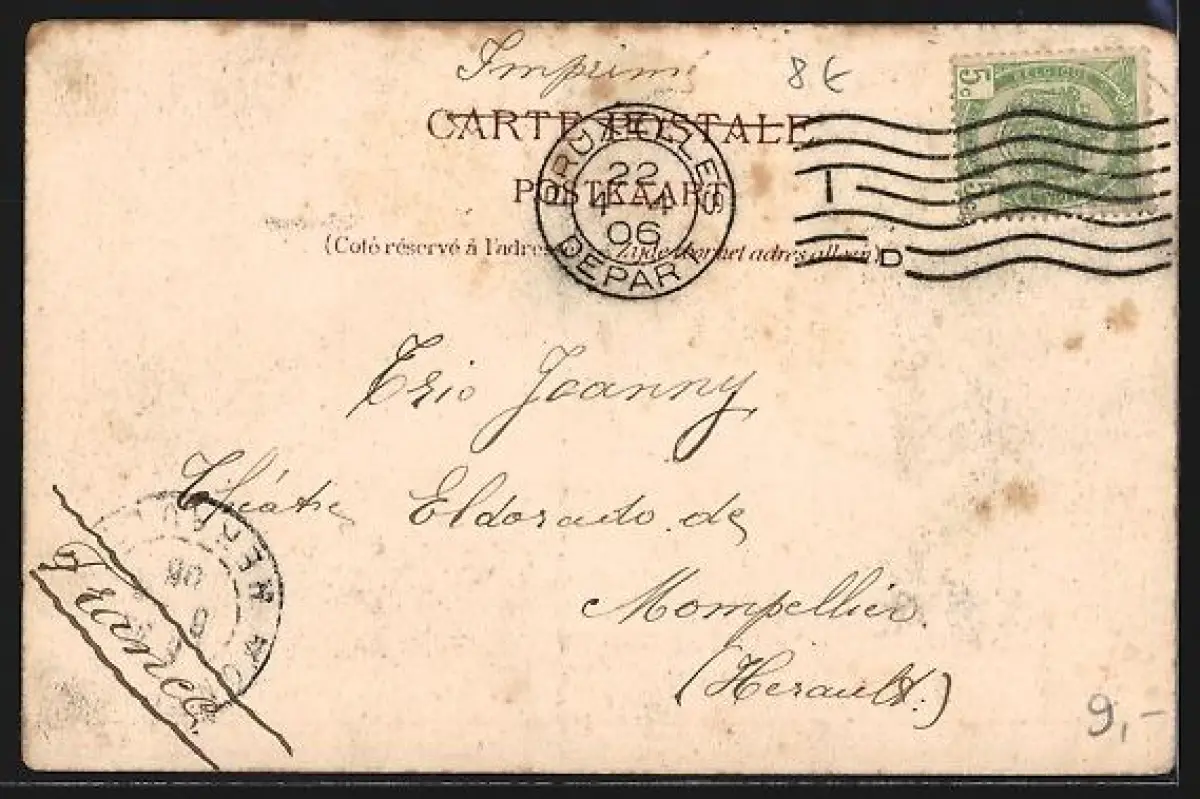 Imprimé
8 €
5c BELGIQUE
CARTE POSTALE
POSTKAART
(Coté réservé á l'adresse Zijde voor het adres alleen)
BRUXELLES
22
4
06
DEPART
D
Trio Joanny
Théâtre Eldorado de
Mompellier
(Herault.)
France.
9,-